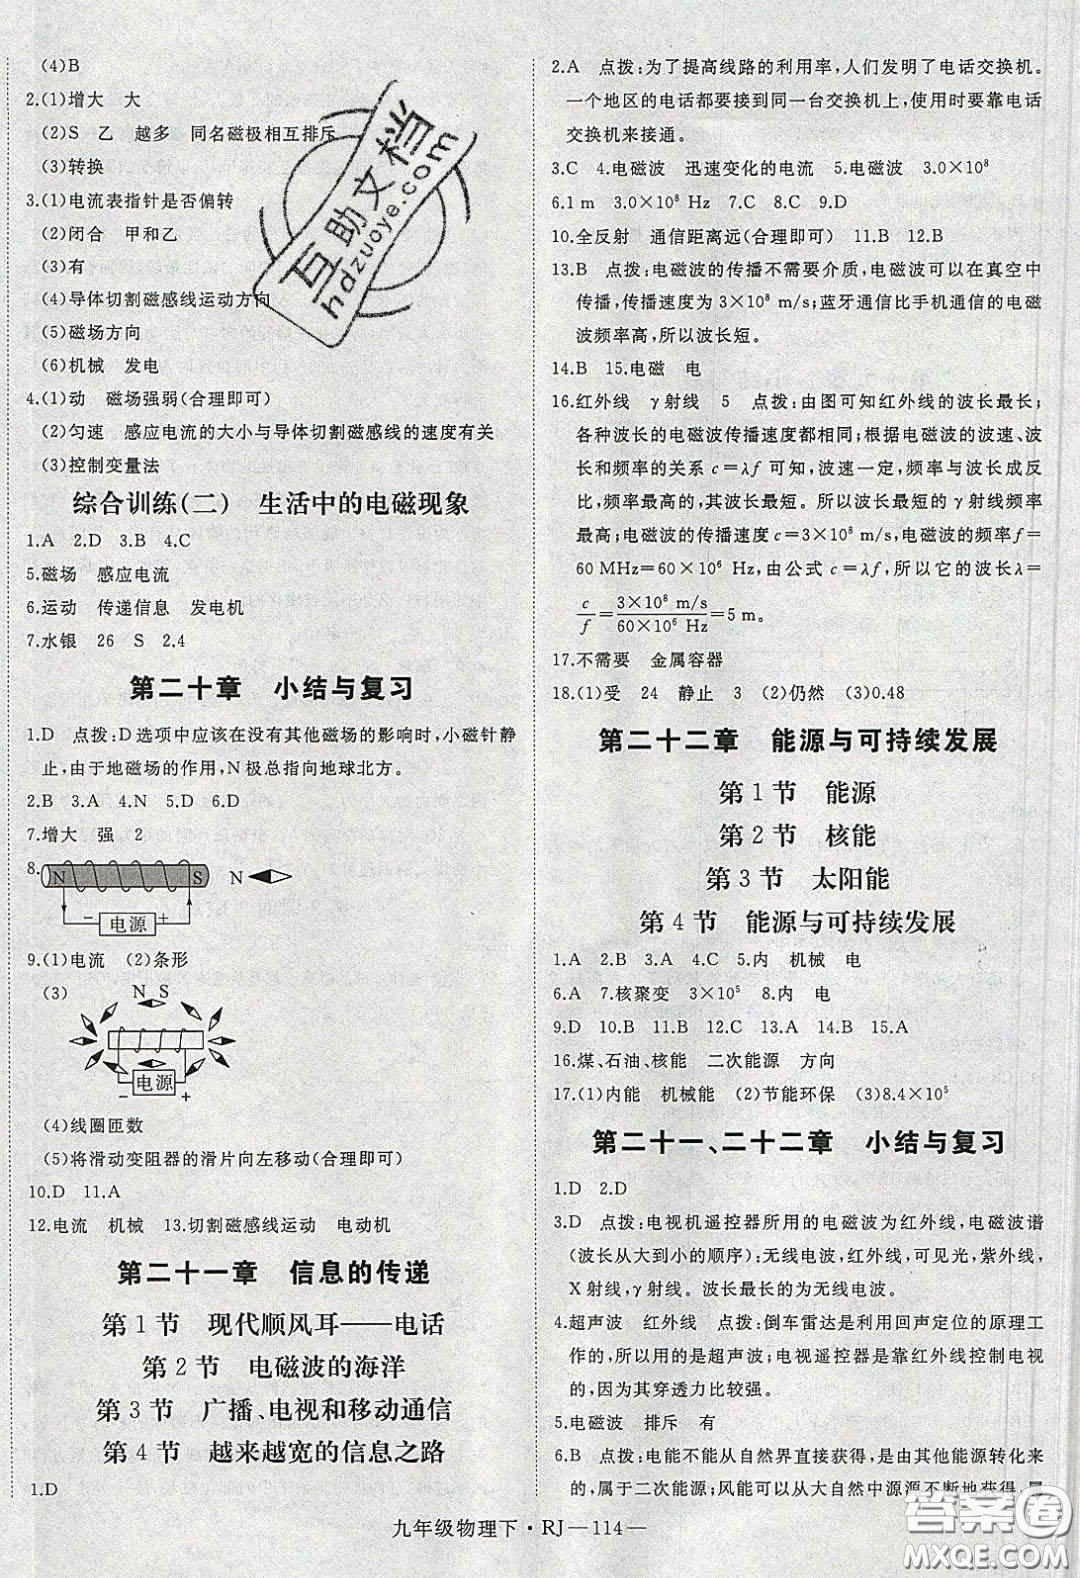 (4)B
2.(1)增大 大
(2)S 乙 越多 同名磁极相互排斥
(3)转换
3.(1)电流表指针是否偏转
(2)闭合 甲和乙
(3)有
(4)导体切割磁感线运动方向
(5)磁场方向
(6)机械 发电
4.(1)动 磁场强弱(合理即可)
(2)匀速 感应电流的大小与导体切割磁感线的速度有关
(3)控制变量法
综合训练(二) 生活中的电磁现象
1.A 2.D 3.B 4.C
5.磁场 感应电流
6.运动 传递信息 发电机
7.水银 26 S 2.4
第二十章 小结与复习
1.D 点拨:D选项中应该在没有其他磁场的影响时,小磁针静
止,由于地磁场的作用,N极总指向地球北方。
2.B 3.A 4.N 5.D 6.D
7.增大 强 2
8.
N S N
- 电源 +
9.(1)电流 (2)条形
(3) N S
- 电源 +
(4)线圈匝数
(5)将滑动变阻器的滑片向左移动(合理即可)
10.D 11.A
12.电流 机械 13.切割磁感线运动 电动机
第二十一章 信息的传递
第1节 现代顺风耳——电话
第2节 电磁波的海洋
第3节 广播、电视和移动通信
第4节 越来越宽的信息之路
1.D
2.A 点拨:为了提高线路的利用率,人们发明了电话交换机。
一个地区的电话都要接到同一台交换机上,使用时要靠电话
交换机来接通。
3.C 4.电磁波 迅速变化的电流 5.电磁波 3.0×10⁸
6.1 m 3.0×10⁸ Hz 7.C 8.C 9.D
10.全反射 通信距离远(合理即可) 11.B 12.B
13.B 点拨:电磁波的传播不需要介质,电磁波可以在真空中
传播,传播速度为 3×10⁸ m/s;蓝牙通信比手机通信的电磁
波频率高,所以波长短。
14.B 15.电磁 电
16.红外线 γ射线 5 点拨:由图可知红外线的波长最长;
各种波长的电磁波传播速度都相同;根据电磁波的波速、波
长和频率的关系 c=λf 可知,波速一定,频率与波长成反
比,频率最高的,其波长最短。所以波长最短的γ射线频率
最高;电磁波的传播速度 c=3×10⁸ m/s,电磁波的频率 f=
60 MHz=60×10⁶ Hz,由公式 c=λf,所以,它的波长λ=
c/f=3×10⁸ m/s/60×10⁶ Hz=5 m。
17.不需要 金属容器
18.(1)受 24 静止 3 (2)仍然 (3)0.48
第二十二章 能源与可持续发展
第1节 能源
第2节 核能
第3节 太阳能
第4节 能源与可持续发展
1.A 2.B 3.A 4.C 5.内 机械 电
6.A 7.核聚变 3×10⁵ 8.内 电
9.D 10.B 11.B 12.C 13.A 14.B 15.A
16.煤、石油、核能 二次能源 方向
17.(1)内能 机械能 (2)节能环保 (3)8.4×10⁵
第二十一、二十二章 小结与复习
1.D 2.D
3.D 点拨:电视机遥控器所用的电磁波为红外线,电磁波谱
(波长从大到小的顺序):无线电波,红外线,可见光,紫外线,
X射线,γ射线。波长最长的为无线电波。
4.超声波 红外线 点拨:倒车雷达是利用回声定位的原理工
作的,所以用的是超声波;电视遥控器是靠红外线控制电视
的,因为其穿透力比较强。
5.电磁波 排斥 有
6.B 点拨:电能不能从自然界直接获得,是由其他能源转化来
的,属于二次能源;风能可以从大自然中源源不断地获得,属
九年级物理下·RJ—114—
互助文档
hdzuoye.com
答案圈
MXQE.COM